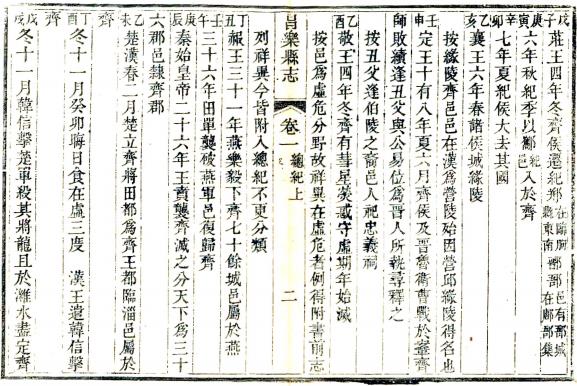 戊子 莊王四年冬齊侯遷紀郱在臨朐縣東南鄑郚邑有郚城在鄑郚集
庚寅 六年秋紀季以酅紀邑入於齊
辛卯 七年夏紀侯大去其國
乙亥 襄王六年春諸侯城緣陵
按緣陵齊邑在漢為營陵殆因營邱緣陵得名也
壬申 定王十有八年夏六月齊侯及晉魯衛曹戰於鞌齊
師敗績逢丑父與公易位為晉人所執尋釋之
按丑父逢伯陵之裔邑人祀忠義祠
乙酉 敬王四年冬齊有彗星熒惑守虛期年始滅
按邑為虛危分野故祥異在虛危者例得附書前志
昌樂縣志 卷一 總紀上 二
列祥異今皆附入總紀不更分類
丁丑 赧王三十一年燕樂毅下齊七十餘城邑屬於燕
壬午 三十六年田單襲破燕軍邑復歸齊
庚辰 秦始皇帝二十六年王賁襲齊滅之分天下為三十
六郡邑隸齊郡
乙未 楚漢春二月楚立齊將田都為齊王都臨淄邑屬於
齊
丁酉 冬十一月癸卯晦日食在虛三度 漢王遣韓信擊
齊
戊戌 冬十一月韓信擊楚軍殺其將龍且於濰水盡定齊